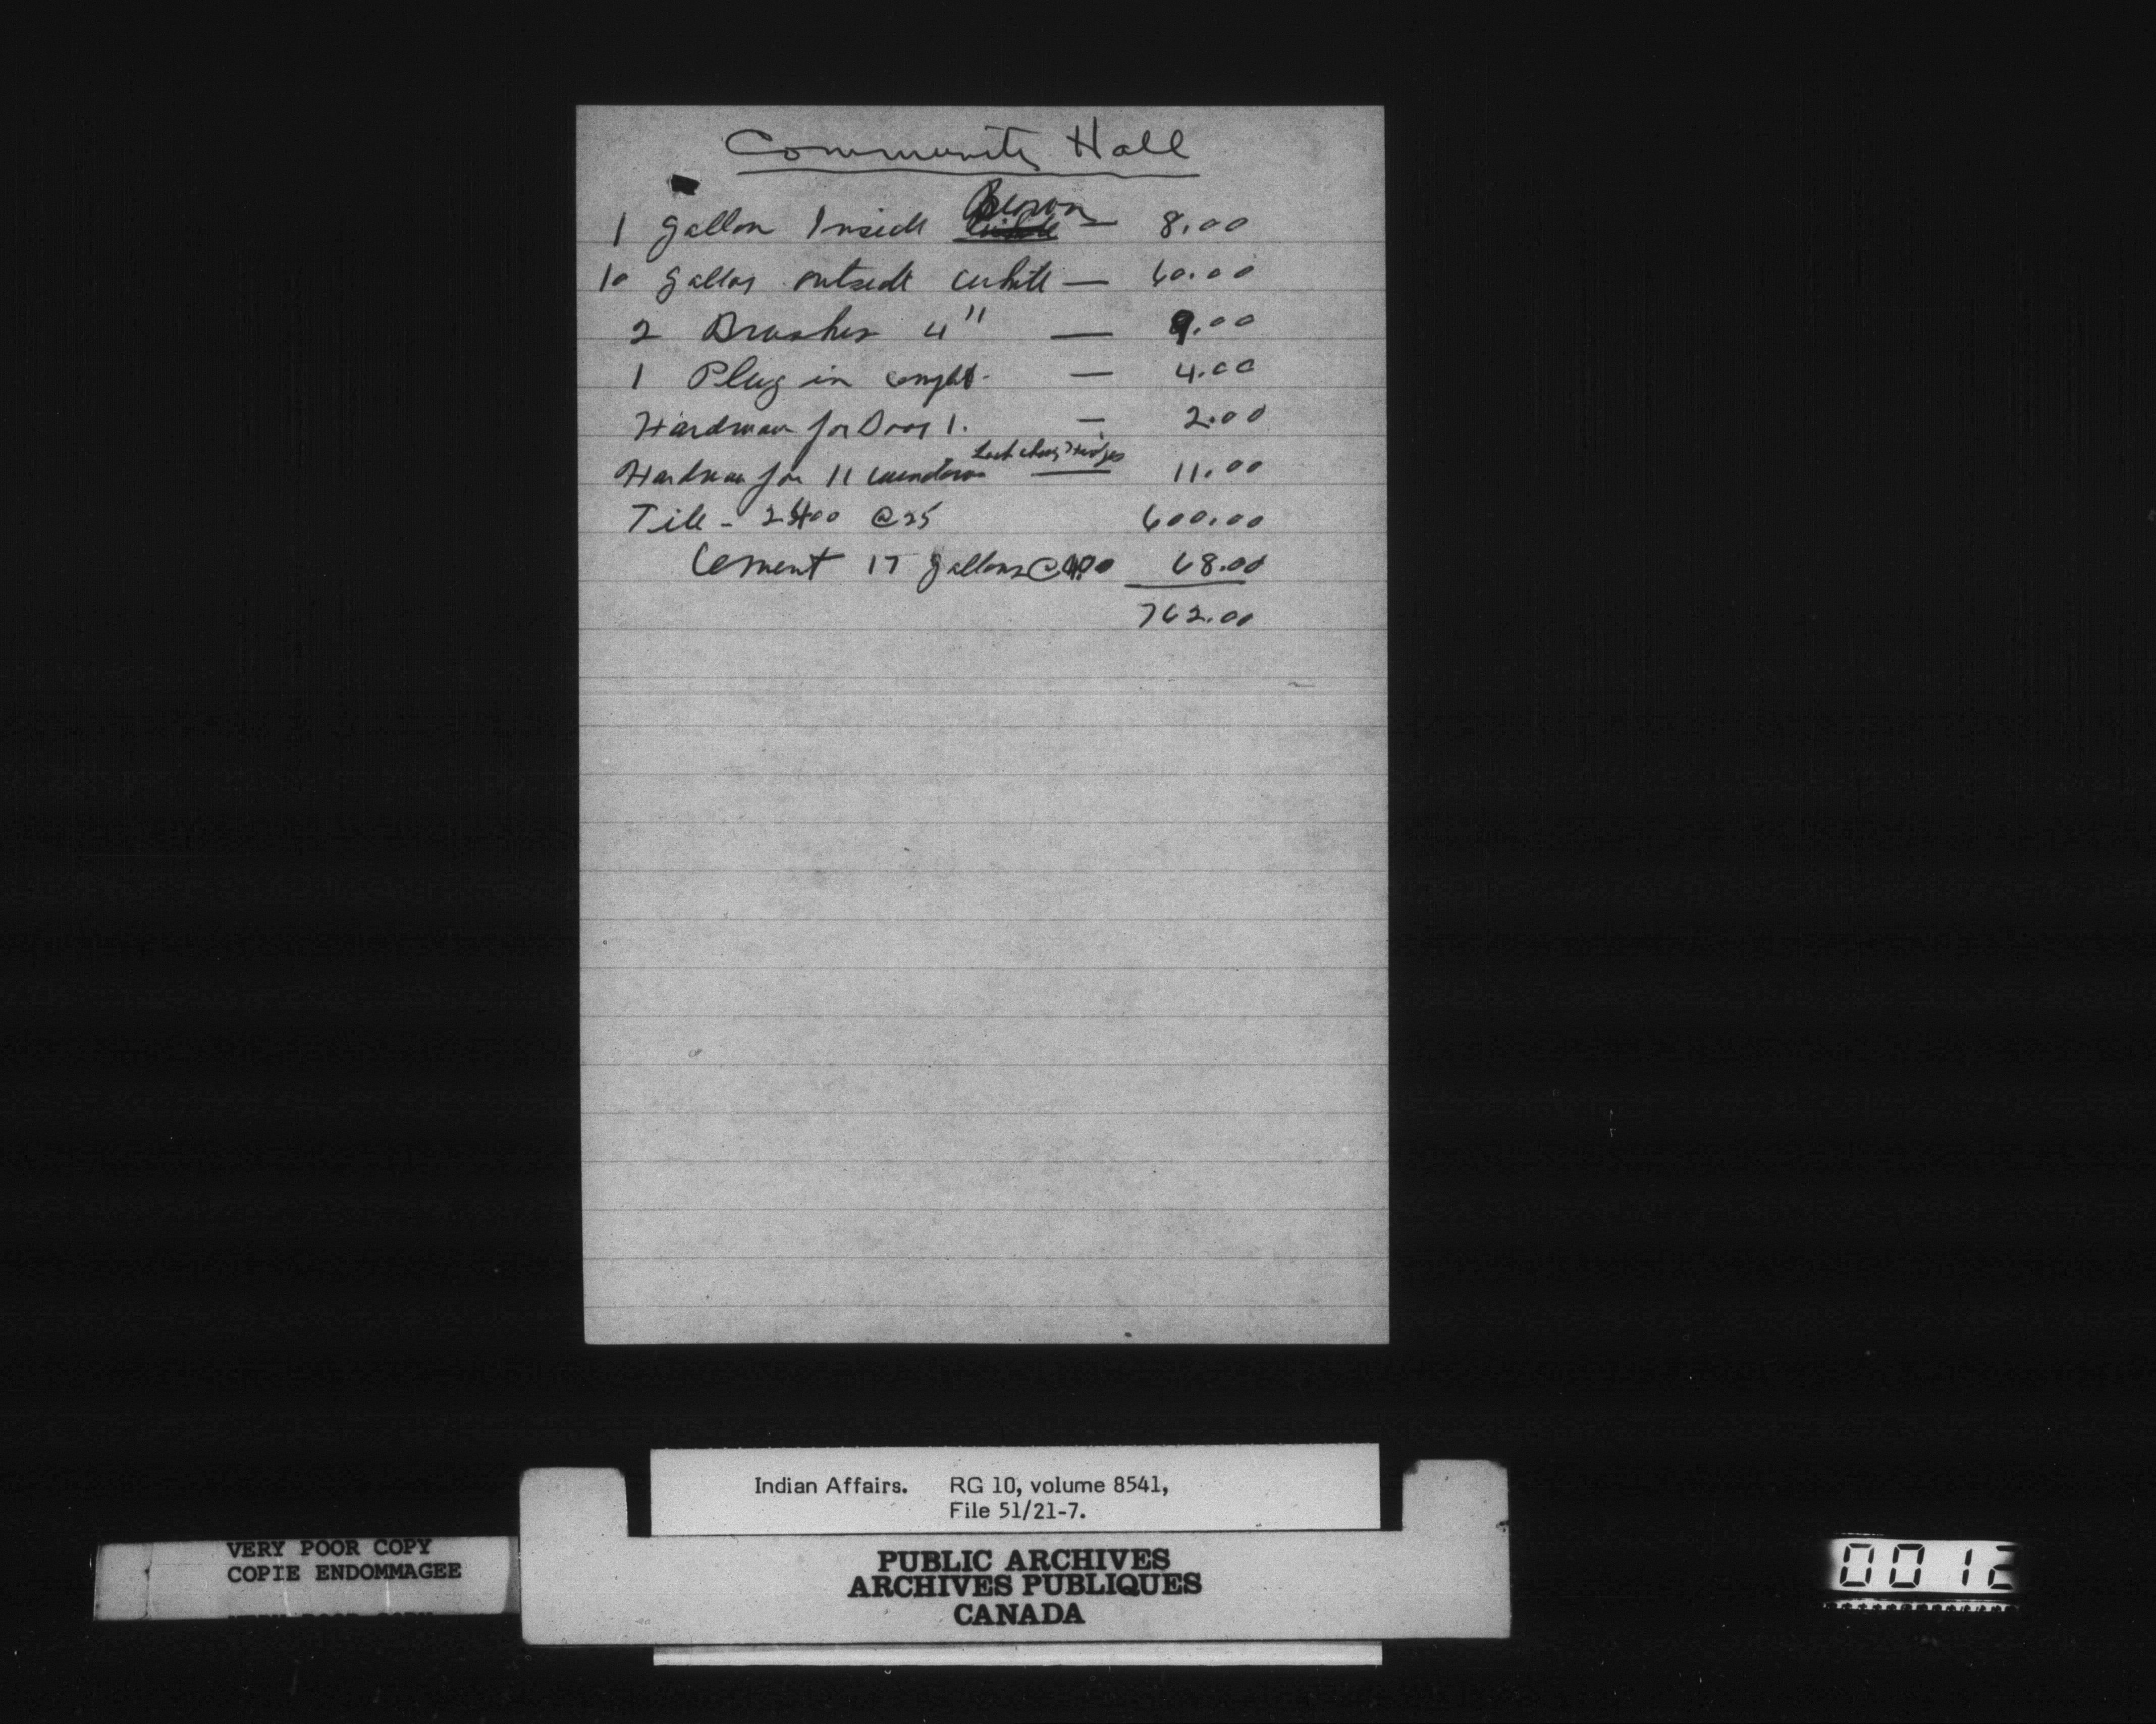 Community Hall
1 gallon Inside Brown — 8.00
10 gallons outside white — 60.00
2 Brushes 4" — 9.00
1 Plug in — 4.00
Hardware for Door 1. — 2.00
Hardware for 11 windows — 11.00
Tile - 2400 @ 25 600.00
Cement 17 gallons @ 4.00 68.00
762.00
Indian Affairs. RG 10, volume 8541,
File 51/21-7.
VERY POOR COPY
COPIE ENDOMMAGEE
PUBLIC ARCHIVES
ARCHIVES PUBLIQUES
CANADA
0012